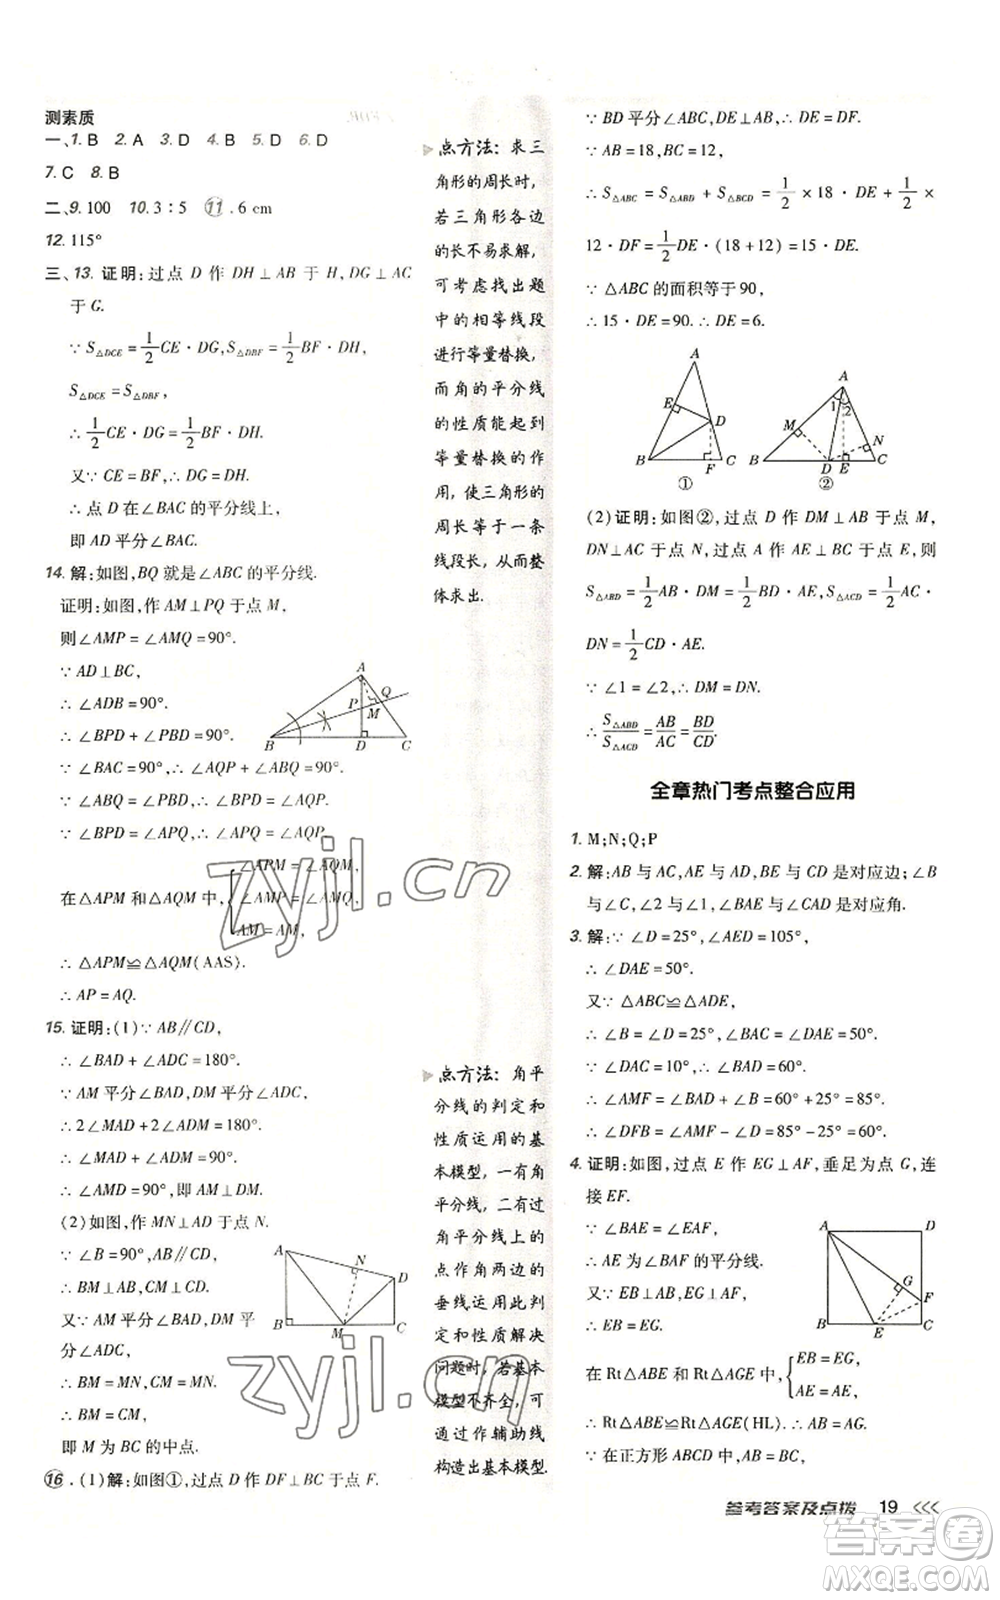 测素质
一、1. B 2. A 3. D 4. B 5. D 6. D
7. C 8. B
二、9. 100 10. 3 : 5 11. 6 cm
12. 115°
三、13. 证明:过点 D 作 DH⊥AB 于 H,DG⊥AC
于 G.
∵S△DCE=1/2CE·DG,S△DBF=1/2BF·DH,
S△DCE=S△DBF,
∴1/2CE·DG=1/2BF·DH.
又∵CE=BF,∴DG=DH.
∴点 D 在∠BAC 的平分线上,
即 AD 平分∠BAC.
14. 解:如图,BQ 就是∠ABC 的平分线.
证明:如图,作 AM⊥PQ 于点 M,
则∠AMP=∠AMQ=90°.
∵AD⊥BC,
∴∠ADB=90°.
∴∠BPD+∠PBD=90°.
∵∠BAC=90°,∴∠AQP+∠ABQ=90°.
∵∠ABQ=∠PBD,∴∠BPD=∠AQP.
∵∠BPD=∠APQ,∴∠APQ=∠AQP.
在△APM 和△AQM 中,{∠APM=∠AQM,
∠AMP=∠AMQ,
AM=AM,
∴△APM≌△AQM(AAS).
∴AP=AQ.
15. 证明:(1)∵AB∥CD,
∴∠BAD+∠ADC=180°.
∵AM 平分∠BAD,DM 平分∠ADC,
∴2∠MAD+2∠ADM=180°.
∴∠MAD+∠ADM=90°.
∴∠AMD=90°,即 AM⊥DM.
(2)如图,作 MN⊥AD 于点 N.
∵∠B=90°,AB∥CD,
∴BM⊥AB,CM⊥CD.
又∵AM 平分∠BAD,DM 平
分∠ADC,
∴BM=MN,CM=MN.
∴BM=CM,
即 M 为 BC 的中点.
16. (1)解:如图①,过点 D 作 DF⊥BC 于点 F.
点方法: 求三
角形的周长时,
若三角形各边
的长不易求解,
可考虑找出题
中的相等线段
进行等量替换,
而角的平分线
的性质能起到
等量替换的作
用,使三角形的
周长等于一条
线段长,从而整
体求出.
点方法: 角平
分线的判定和
性质运用的基
本模型,一有角
平分线,二有过
角平分线上的
点作角两边的
垂线运用此判
定和性质解决
问题时,若基本
模型不齐全,可
通过作辅助线
构造出基本模型.
∵BD 平分∠ABC,DE⊥AB,∴DE=DF.
∵AB=18,BC=12,
∴S△ABC=S△ABD+S△BCD=1/2×18·DE+1/2×
12·DF=1/2DE·(18+12)=15·DE.
∵△ABC 的面积等于 90,
∴15·DE=90.∴DE=6.
A E D B F C ①
A 1 2 M N B D E C ②
(2)证明:如图②,过点 D 作 DM⊥AB 于点 M,
DN⊥AC 于点 N,过点 A 作 AE⊥BC 于点 E,则
S△ABD=1/2AB·DM=1/2BD·AE,S△ACD=1/2AC·
DN=1/2CD·AE.
∵∠1=∠2,∴DM=DN.
∴S△ABD/S△ACD=AB/AC=BD/CD.
全章热门考点整合应用
1. M;N;Q;P
2. 解:AB 与 AC,AE 与 AD,BE 与 CD 是对应边;∠B
与∠C,∠AEB 与∠ADC,∠BAE 与∠CAD 是对应角.
3. 解:∵∠D=25°,∠AED=105°,
∴∠DAE=50°.
又∵△ABC≌△ADE,
∴∠B=∠D=25°,∠BAC=∠DAE=50°.
∵∠DAC=10°,∴∠BAD=60°.
∴∠AMF=∠BAD+∠B=60°+25°=85°.
∴∠DFB=∠AMF-∠D=85°-25°=60°.
4. 证明:如图,过点 E 作 EG⊥AF,垂足为点 G,连
接 EF.
∵∠BAE=∠EAF,
∴AE 为∠BAF 的平分线.
又∵EB⊥AB,EG⊥AF,
∴EB=EG.
在 Rt△ABE 和 Rt△AGE 中,{EB=EG,
AE=AE,
∴Rt△ABE≌Rt△AGE(HL).∴AB=AG.
∵在正方形 ABCD 中,AB=BC,
参考答案及点拨 19
zyjl.cn
zyjl.cn
答案卷
MXQE.COM